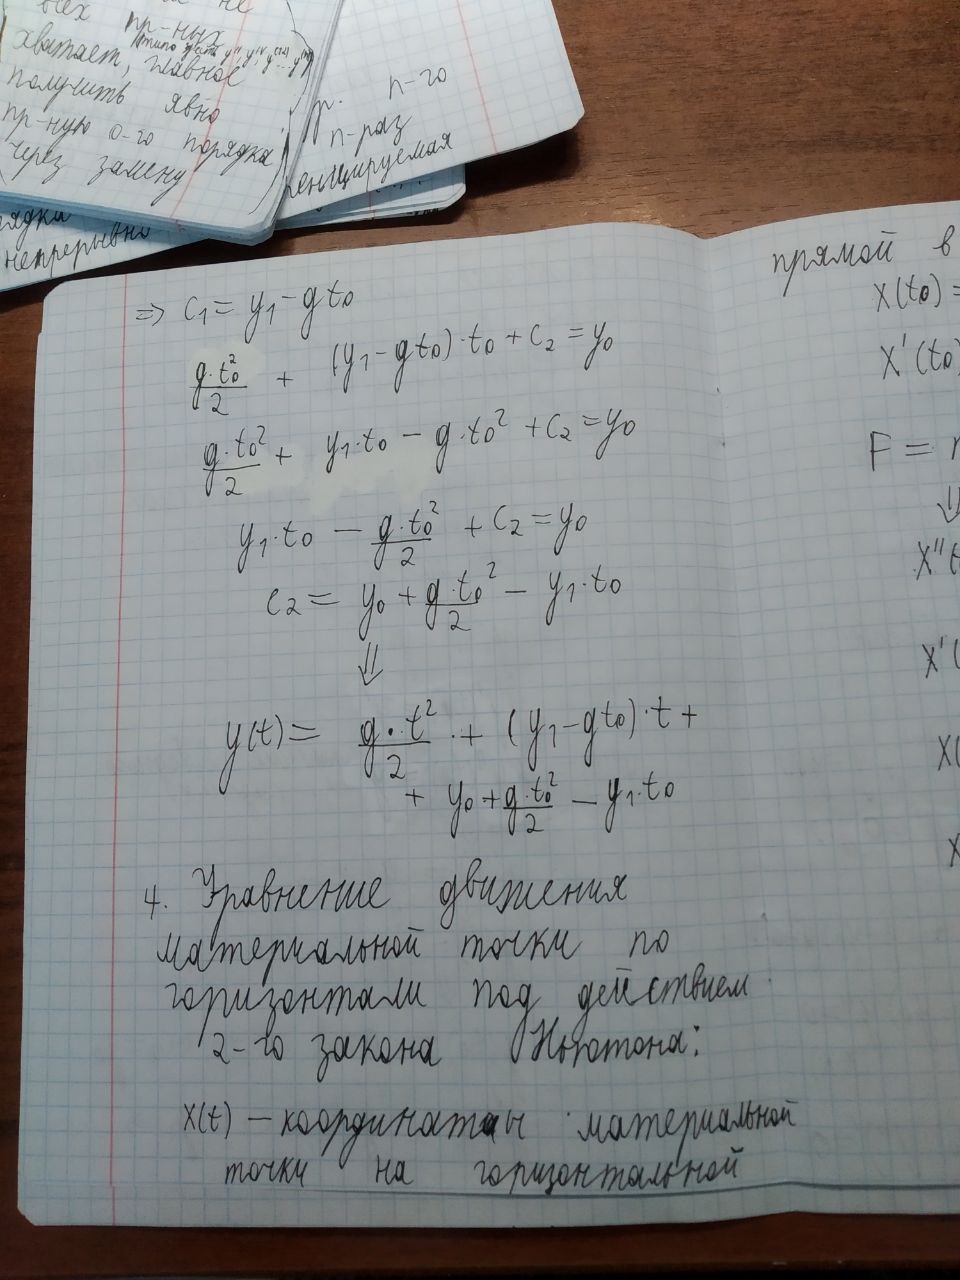 всех не
пр-ных
хватает, главное
получить явно
пр-ную 0-го порядка
через замену
р. n-го
n-раз
непрерывно
⇒ C₁ = y₁ − gt₀
g·t₀²/2 + (y₁ − gt₀)·t₀ + C₂ = y₀
g·t₀²/2 + y₁·t₀ − g·t₀² + C₂ = y₀
y₁·t₀ − g·t₀²/2 + C₂ = y₀
C₂ = y₀ + g·t₀²/2 − y₁·t₀
⇓
y(t) = g·t²/2 + (y₁ − gt₀)·t +
+ y₀ + g·t₀²/2 − y₁·t₀
4. Уравнение движения
материальной точки по
горизонтали под действием
2-го закона Ньютона:
x(t) – координаты материальной
точки на горизонтальной
прямой в
x(t₀) =
x'(t₀)
F =
⇓
x''(
x'(
x(
x